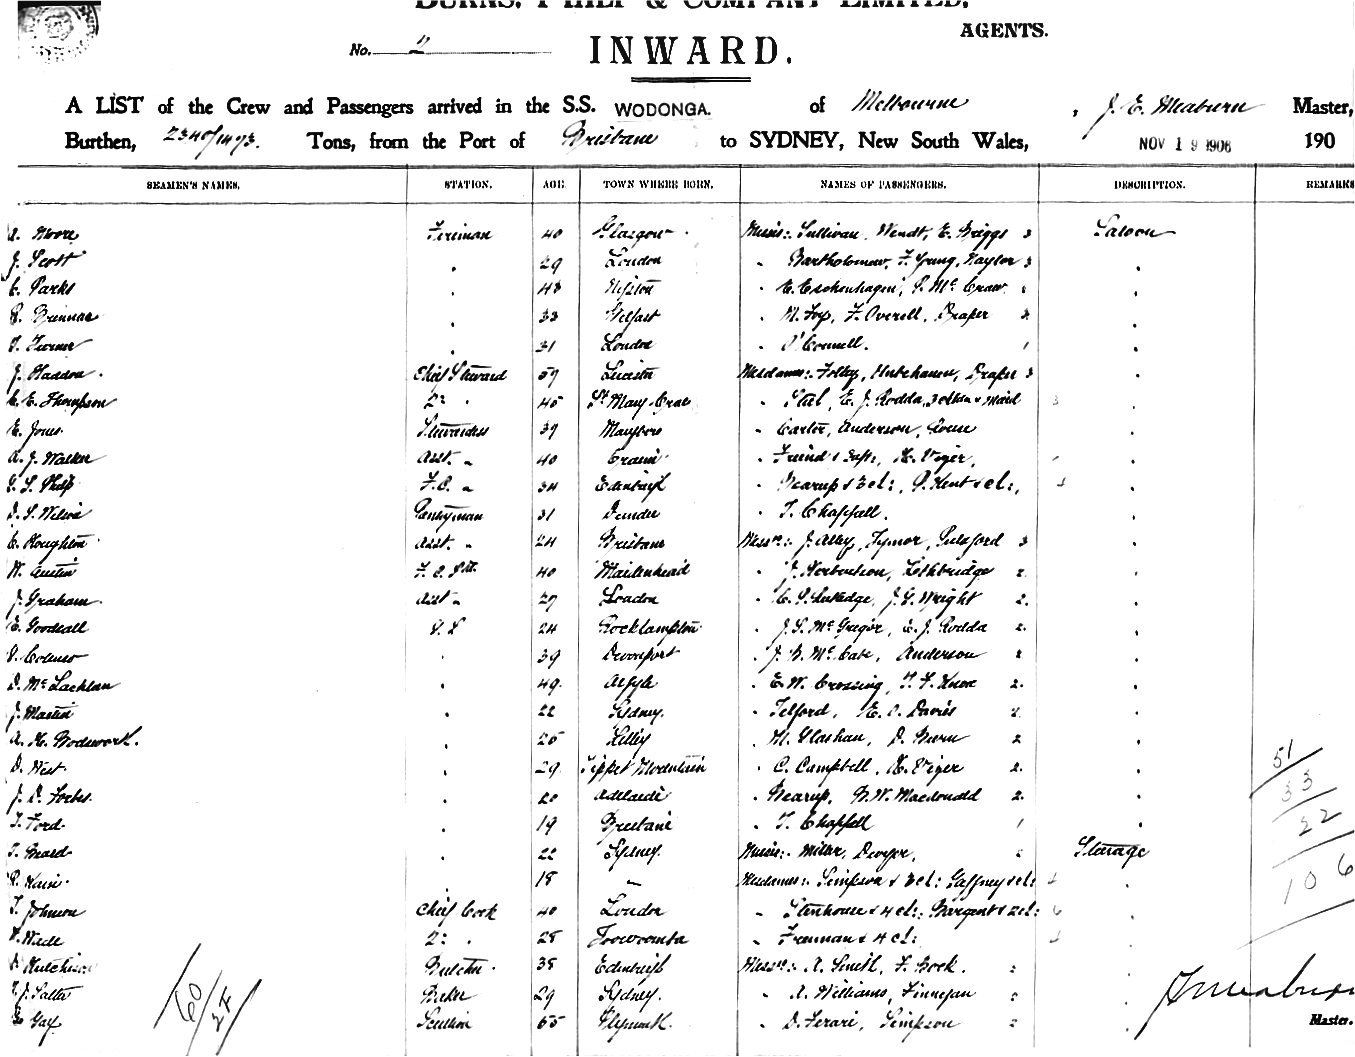 BURNS, PHILP & COMPANY LIMITED,
AGENTS.
No. 2
INWARD.
A LIST of the Crew and Passengers arrived in the S.S. WODONGA. of Melbourne , J. E. Meaburn Master,
Burthen, 2340/1473. Tons, from the Port of Brisbane to SYDNEY, New South Wales, NOV 19 1906 190
SEAMEN'S NAMES. STATION. AGE TOWN WHERE BORN. NAMES OF PASSENGERS. DESCRIPTION. REMARKS
Moore Fireman 40 Glasgow Misses: Sullivan, Wendt, E. Briggs 3 Saloon
J. Scott 29 London Bartholomew, F. Young, Naylor 3
C. Parks 43 E. Eschenhagen, McCraw
Brennan 33 Belfast M. Foy, F. Overell, Draper 3
Turner 31 London O'Connell. 1
J. Haddon. Chief Steward 59 Mesdames: Foley, Draper 3
C. E. Thompson 2: 45 St Mary Cray E. J. Rodda, & Maid 3
E. Jones Stewardess 39 Carter, Anderson, Rouse
A. J. Walker Asst. 40 Friend & Inft:, H. Viger,
34 Edinburgh Gearup & 3 cl:, Kent & cl:,
D. S. Wilson Pantryman 31 Dundee T. Chappell.
C. Houghton Asst. 24 Brisbane Messrs: J. Alley, Tymor, Pulsford 3
W. Austin 40 Maidenhead J. Norbertson, Lethbridge 2.
J. Graham. Asst 27 London J. G. Wright 2.
E. Goodsall 24 Rockhampton J. S. McGregor, E. J. Rodda 2.
39 Devonport J. B. McCabe, Anderson 2
D. McLachlan 49. Argyle E. W. Crossing, F. Knox 2.
J. Martin 22 Sydney. Telford, Davies 2
A. H. Bodsworth. 25 Lilley M. Glashan, D. Burn 2
D. West 29 Mountain C. Campbell, H. Viger 2.
J. D. Forbes. 20 Adelaide Gearup, B. W. Macdonald 2.
T. Ford 19 Brisbane T. Chappell 1
T. Beard 22 Sydney. Misses: Miller, Dwyer, 2 Steerage
18 Mesdames: Simpson & 3 cl: Gaffney & cl:
T. Johnson Chief Cook 40 London Stenhouse & 4 cl:, Sargent & 2 cl:
Wade 2: 28 Toowoomba Freeman & 4 cl:
Hutchison Butcher 38 Edinburgh Messrs: A. Smith, F. Bock. 2
J. Salter Baker 29 Sydney. A. Williams, Finnegan 2
Gay Scullion 55 Plymouth D. Ferari, Simpson 2
51
33
22
106
60
27
J. E. Meaburn
Master.